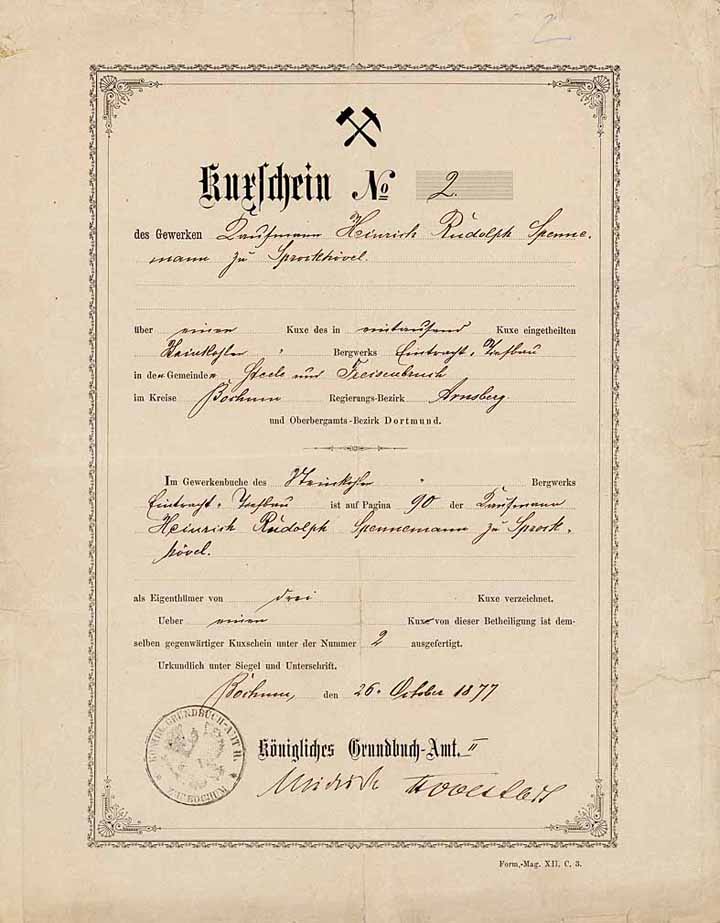 2
Kuxschein № 2.
des Gewerken Kaufmann Heinrich Rudolph Spenne-
mann zu Sprockhövel.
über einen Kuxe des in eintausend Kuxe eingetheilten
Steinkohlen " Bergwerks Eintracht-Tiefbau
in den Gemeinden Steele und Freisenbruch
im Kreise Bochum Regierungs-Bezirk Arnsberg
und Oberbergamts-Bezirk Dortmund.
Im Gewerkenbuche des Steinkohlen " Bergwerks
Eintracht-Tiefbau ist auf Pagina 90 der Kaufmann
Heinrich Rudolph Spennemann zu Sprock-
hövel.
als Eigenthümer von drei Kuxe verzeichnet.
Ueber einen Kuxe von dieser Betheiligung ist dem-
selben gegenwärtiger Kuxschein unter der Nummer 2 ausgefertigt.
Urkundlich unter Siegel und Unterschrift.
Bochum, den 26. October 1877
Königliches Grundbuch-Amt. II
KÖNIGL. GRUNDBUCH-AMT II. * ZU BOCHUM *
Form.-Mag. XII. C. 3.